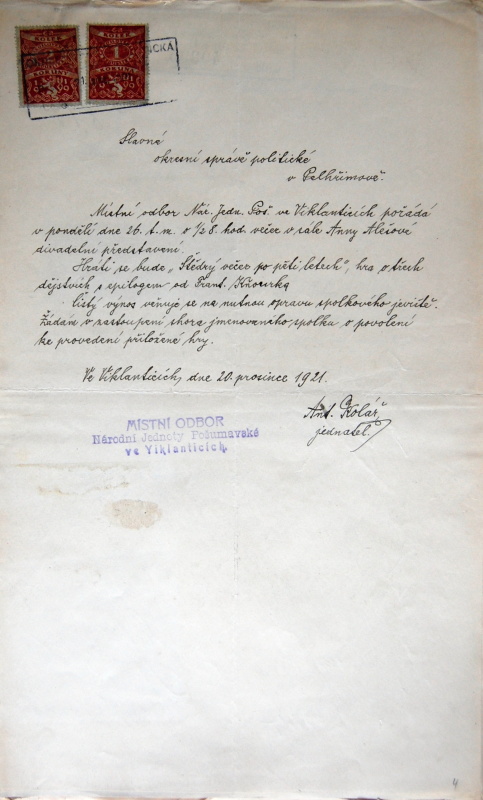 KOLEK
2
KORUNY
KOLEK
1
KORUNA
Slavné
okresní správě politické
v Pelhřimově.
Místní odbor Nár. Jedn. Poš. ve Viklanticích pořádá
v pondělí dne 26. t. m. o ½8. hod. večer v sále Anny Alešové
divadelní představení.
Hráti se bude „Štědrý večer po pěti letech", hra o třech
dějstvích s epilogem od Frant.
Čistý výnos věnuje se na nutnou opravu spolkového jeviště.
Žádám v zastoupení shora jmenovaného spolku o povolení
ke provedení přiložené hry.
Ve Viklanticích, dne 20. prosince 1921.
Ant. Kolář,
jednatel.
MÍSTNÍ ODBOR
Národní Jednoty Pošumavské
ve Viklanticích.
4